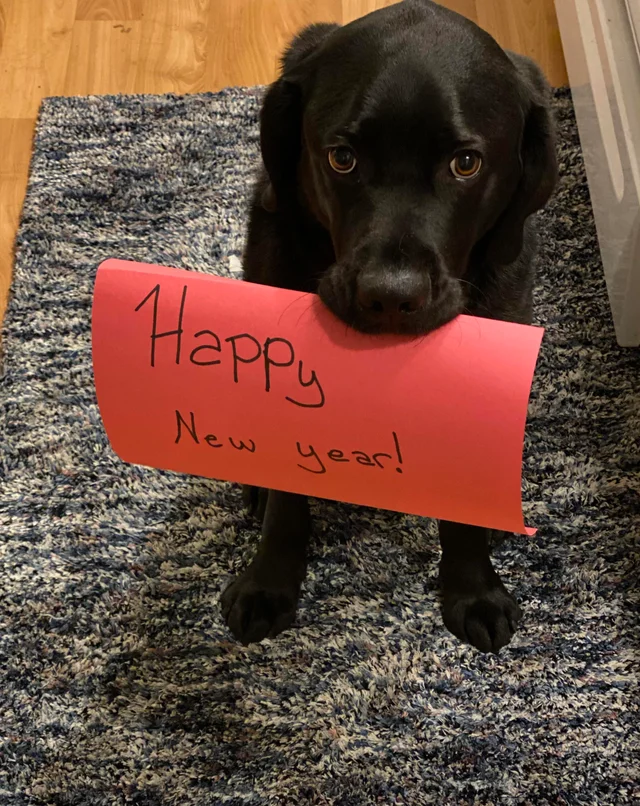 Happy
New year!